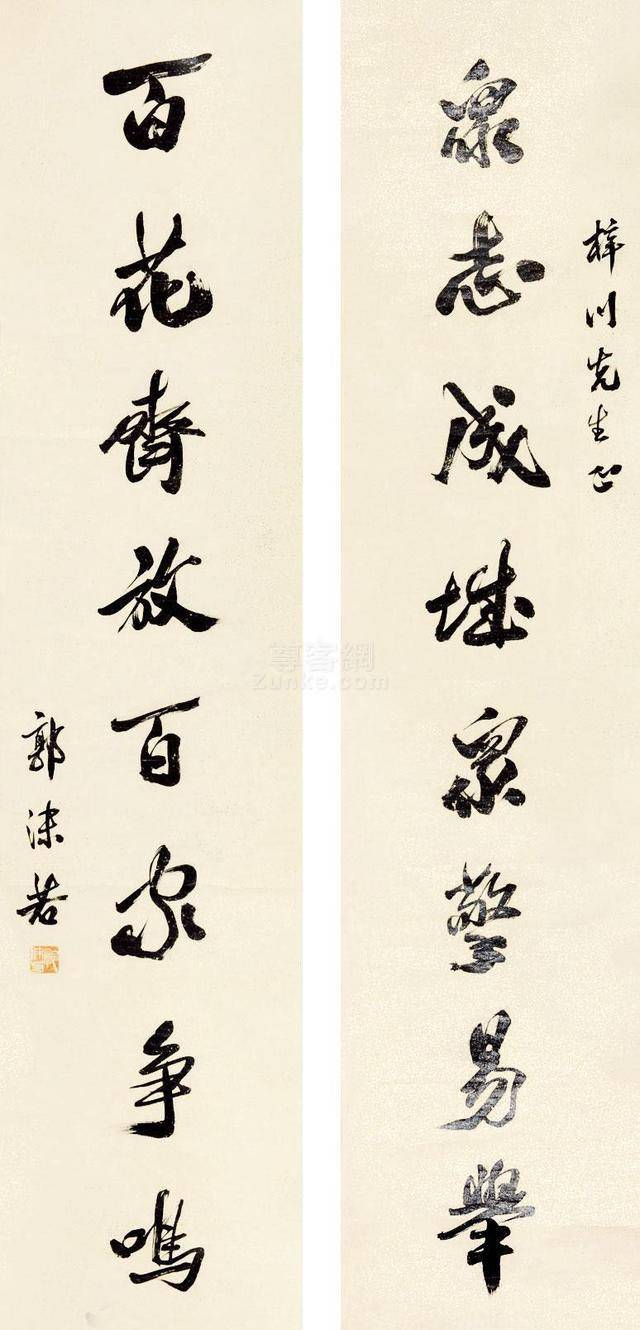 梓川先生正
眾志成城眾擎易舉
百花齊放百家争鳴
郭沫若
尊客網
Zunke.com